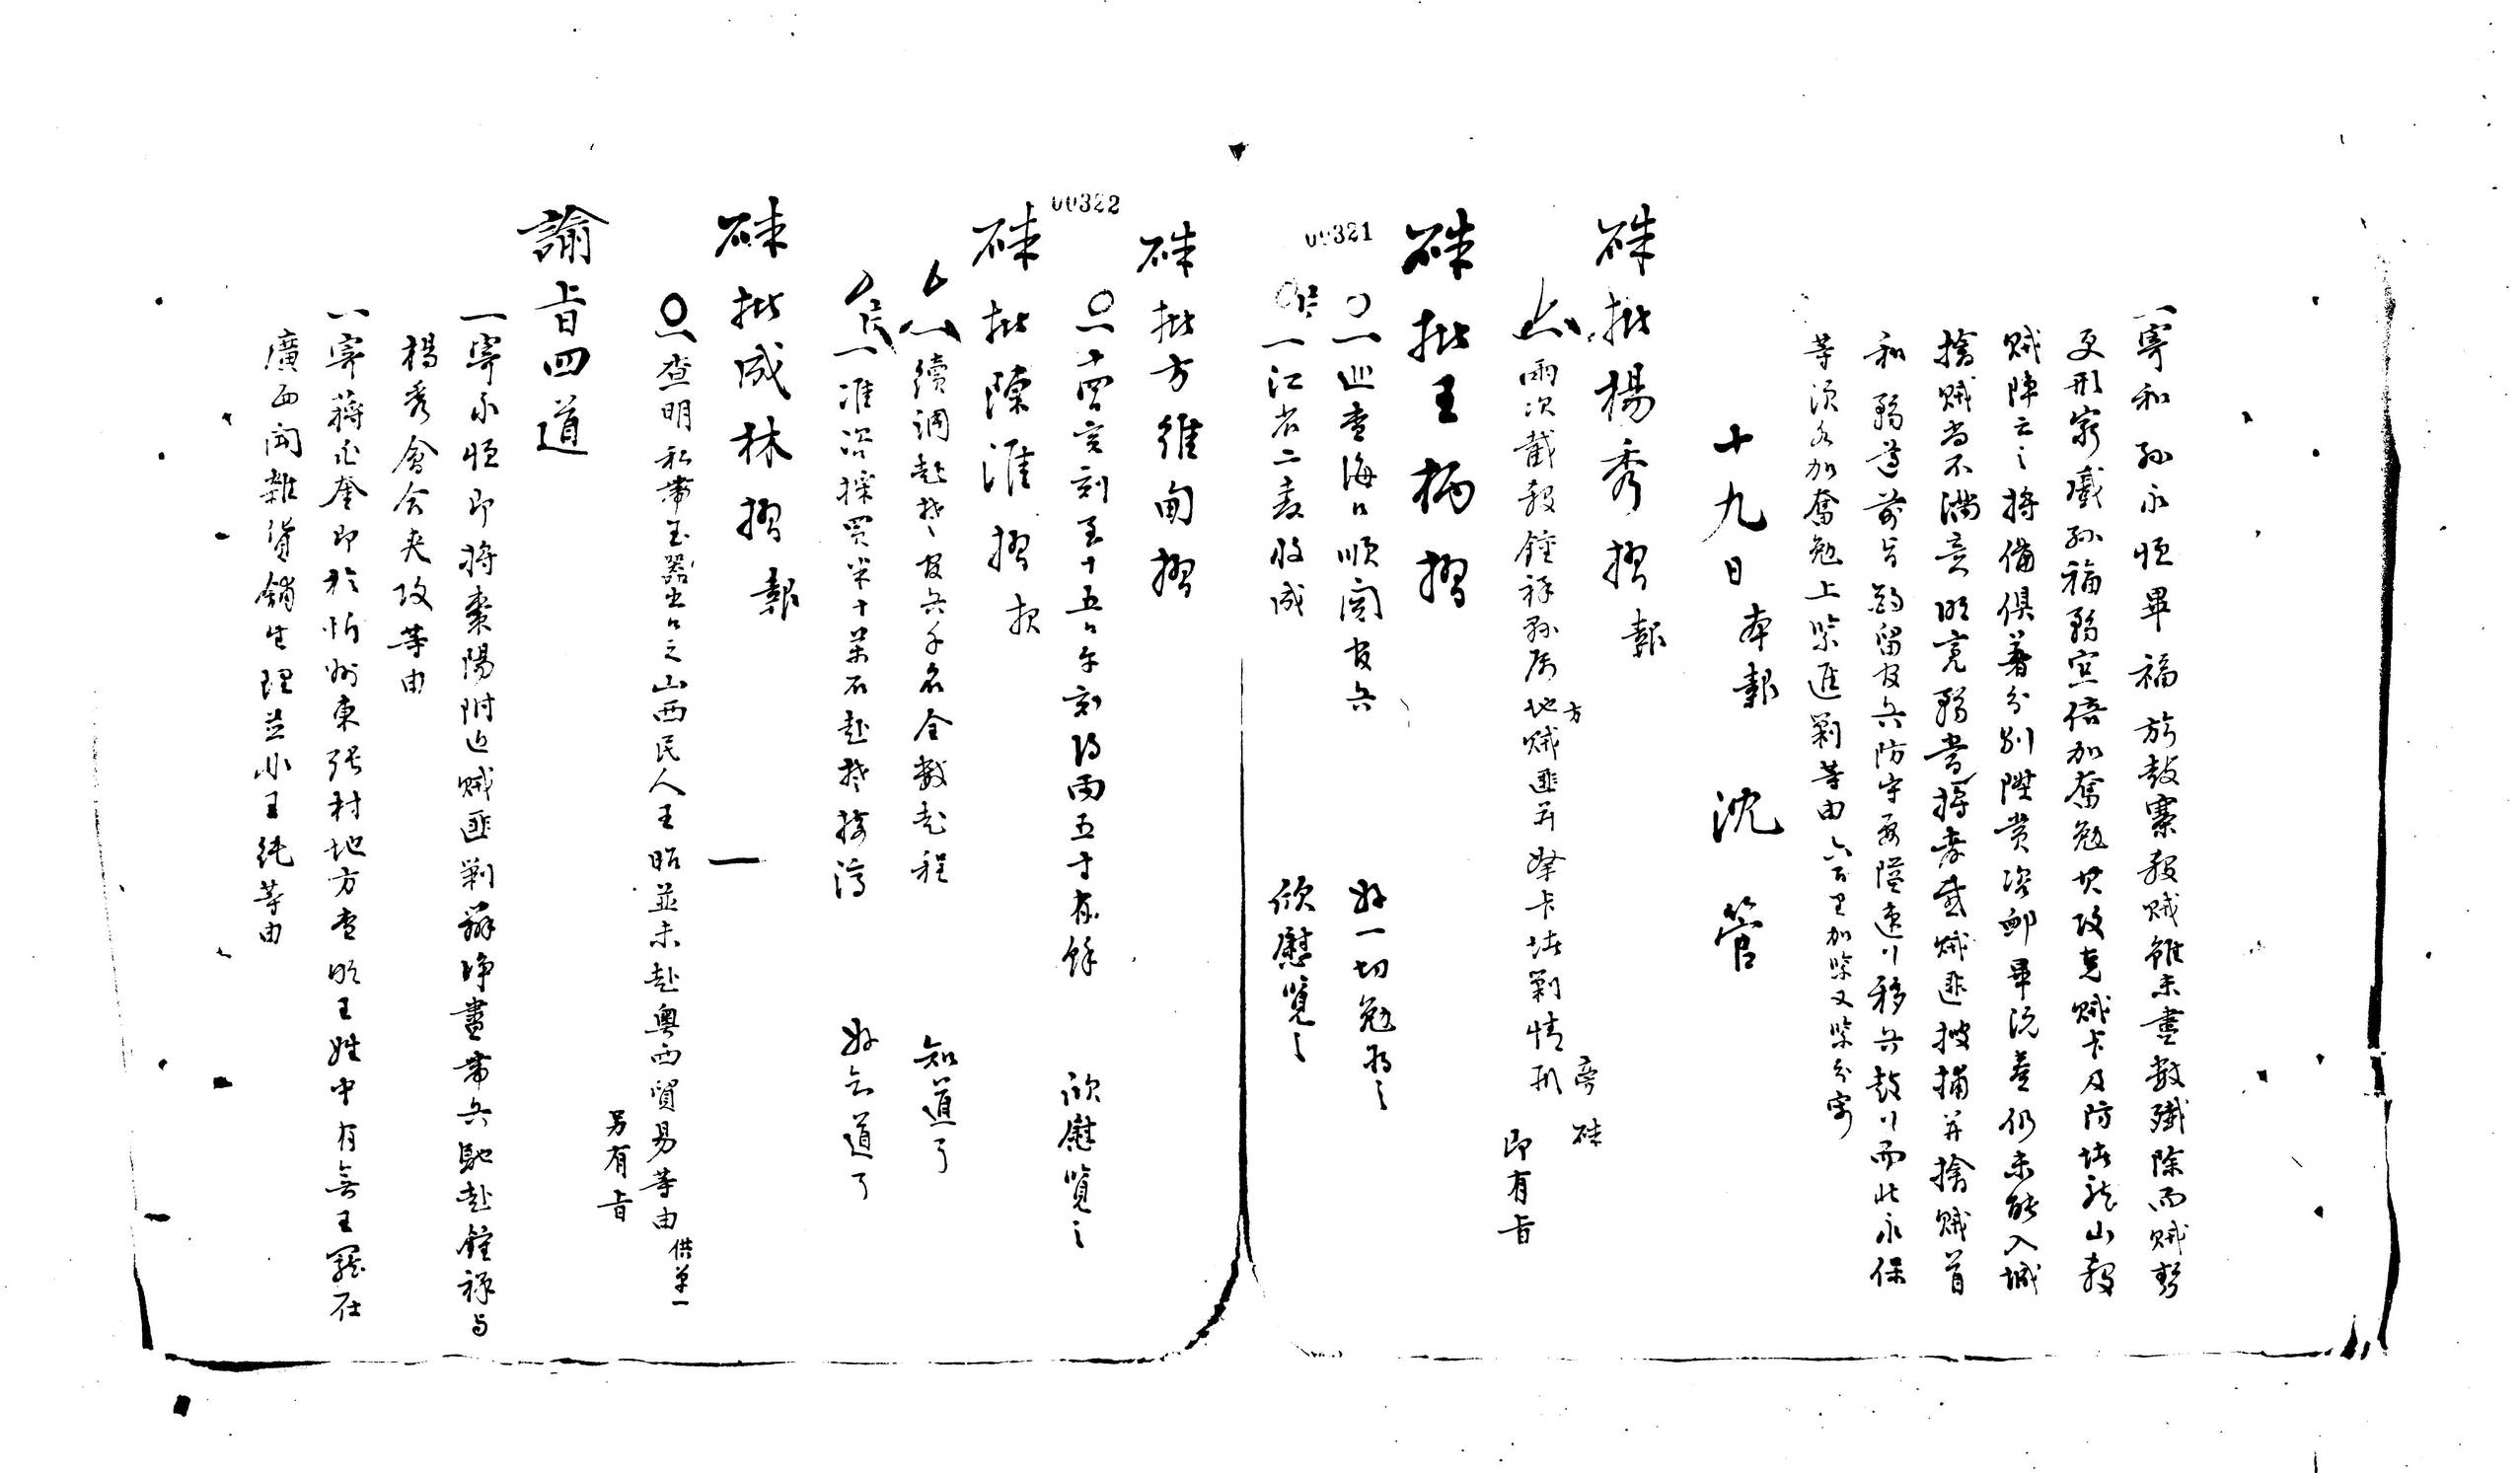 一寄和 孫永恒畢 福 訪鼓寨殺賊雖未盡數殲除而賊勢
更形窮蹙孫福務宜倍加奮勉其攻克賊卡及防堵龍山殺
賊陣亡之將備俱著分別陞賞咨卹畢沅著仍未能入城
擒賊尚不滿意明亮務當將孝感賊匪搜捕并擒賊首
和 務遵前旨酌留官兵防守要隘速行移兵鼓行而北永保
等須各加奮勉上緊進剿等由 六百里加緊又緊分寄
十九日 奉報 沈 管
硃批楊秀摺 報
兩次截殺鍾祥縣屬地方賊匪並拏卡堵剿情形 旁硃 即有旨
硃批王柄摺
一巡查海口順閱官兵 好一切勉為之
一江省二麥收成 欣慰覽之
00321
硃批方維甸摺
一十四亥刻至十五日午刻得雨五寸有餘 欣慰覽之
00322
硃批陳淮摺 报
續調赴楚官兵千名全數起程 知道了
一准咨採買米十萬石赴楚接濟 好知道了
硃批成林摺 報 一
一查明私帶玉器出口之山西民人王昭並未赴粵西貿易等由 供單一 另有旨
諭旨四道
一寄永恒即將棗陽附近賊匪剿辦淨盡帶兵馳赴鍾祥與
楊秀會合夾攻等由
一寄蔣兆奎即於忻州東張村地方查明王姓中有無王羆在
廣西開雜貨舖生理並小王純等由